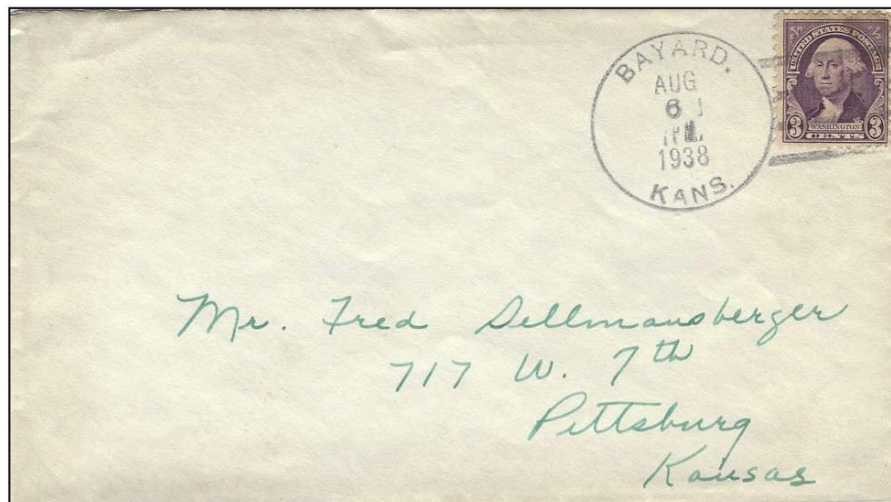 BAYARD.
AUG
6
PM
1938
KANS.
UNITED STATES POSTAGE
3 WASHINGTON 3
CENTS
Mr. Fred Dellmansberger
717 W. 7th
Pittsburg
Kansas